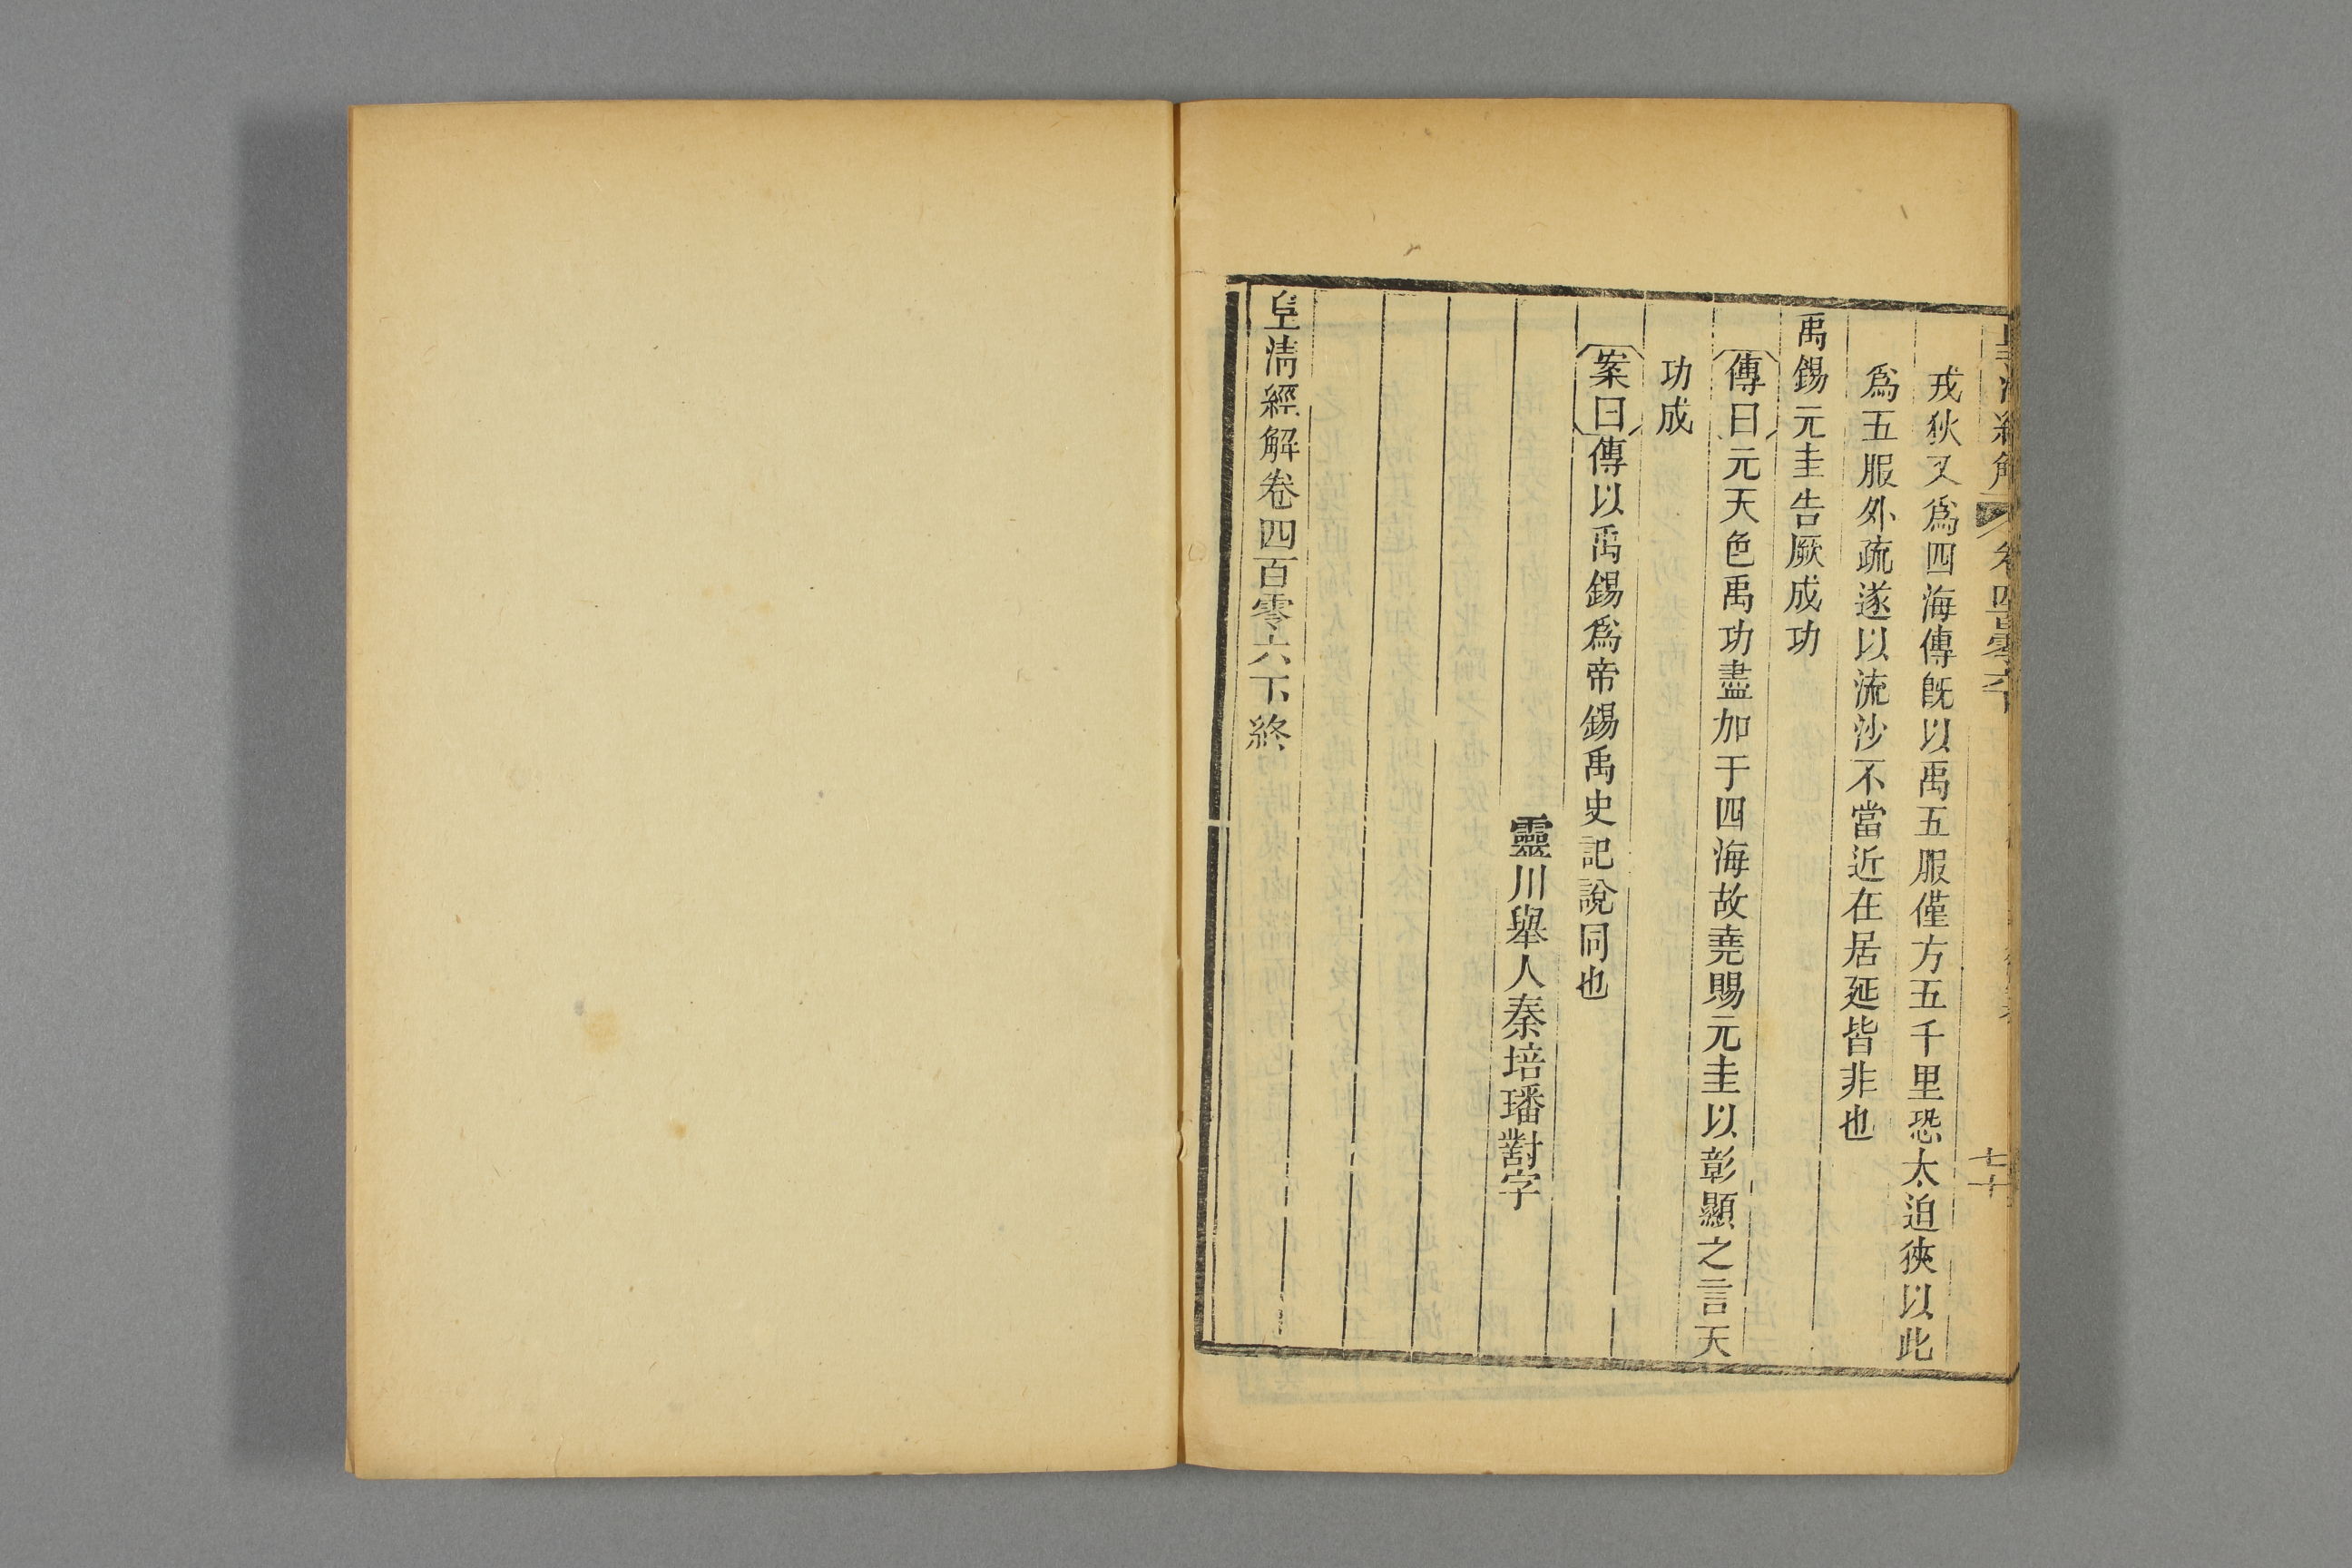 戎狄又爲四海傳旣以禹五服僅方五千里恐太迫狹以此
爲五服外疏遂以流沙不當近在居延皆非也
禹錫元圭告厥成功
傳曰元天色禹功盡加于四海故堯賜元圭以彰顯之言天
功成
案曰傳以禹錫爲帝錫禹史記說同也
靈川舉人秦培璠對字
皇清經解卷四百零六下終
七十